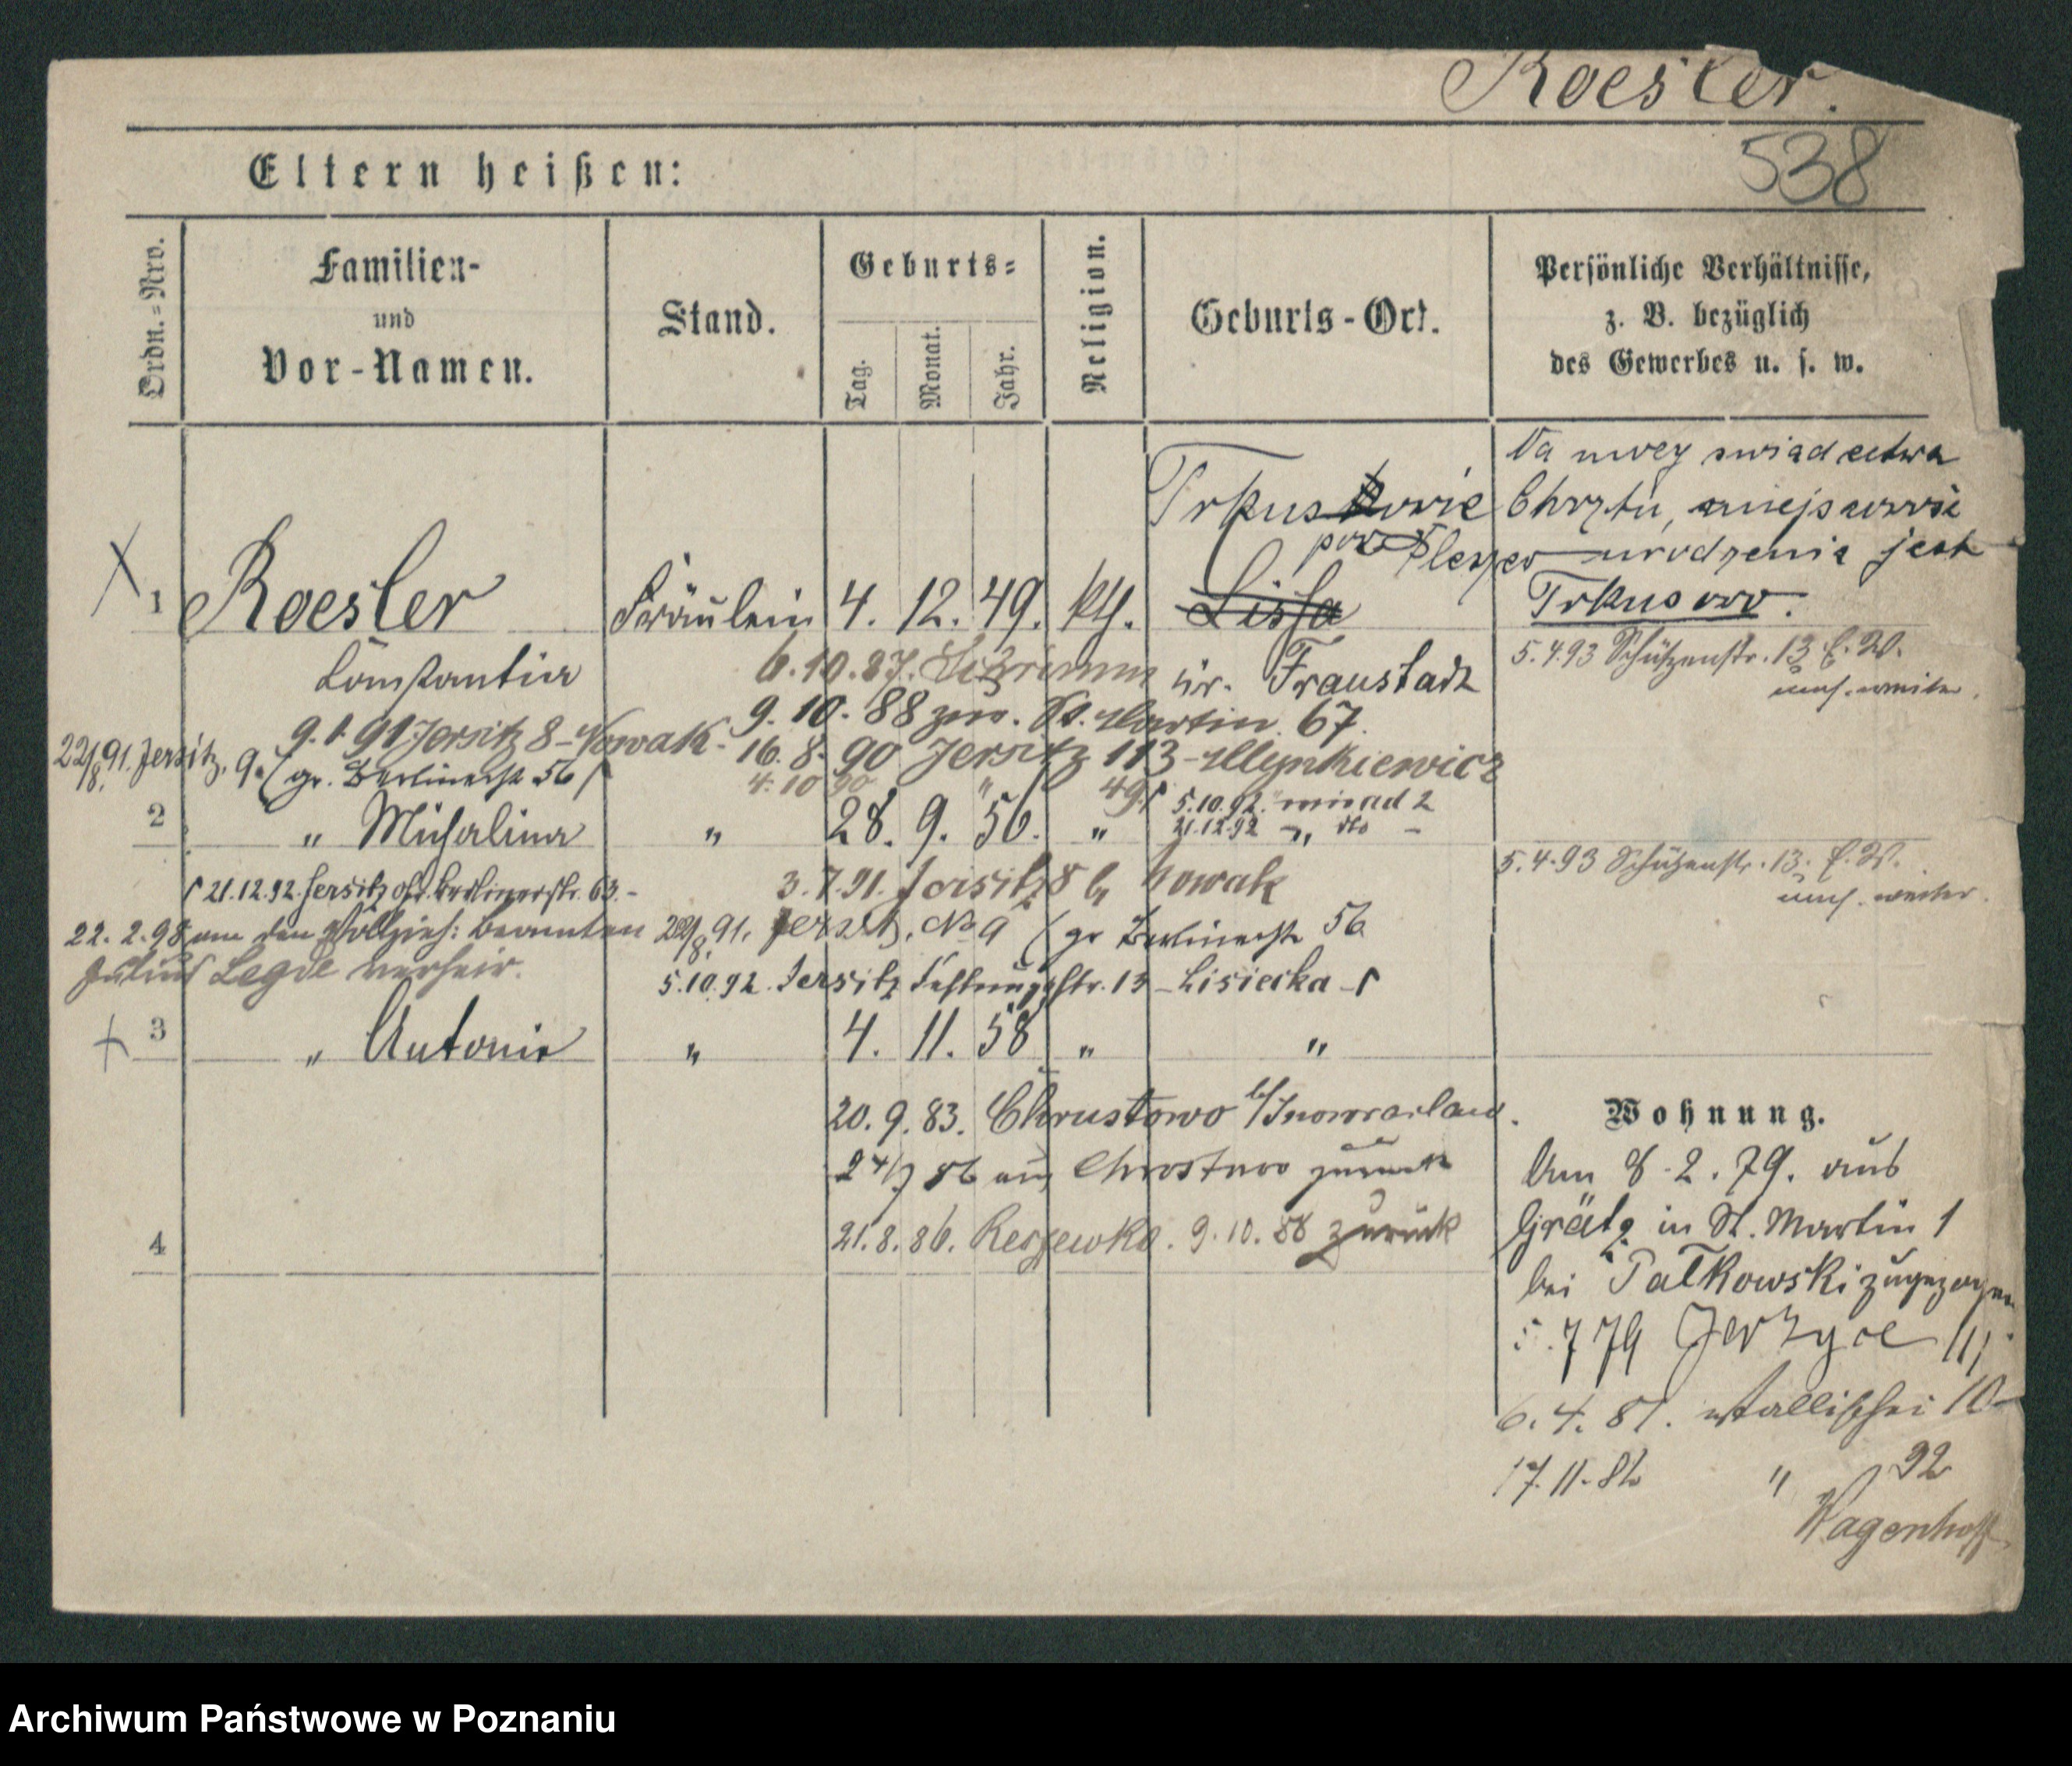 Roesler.
538
Eltern heißen:
Ordn.=Nro.
Familien-
und
Vor-Namen.
Stand.
Geburts=
Tag.
Monat.
Jahr.
Religion.
Geburts-Ort.
Persönliche Verhältnisse,
z. B. bezüglich
des Gewerbes u. s. w.
Chrztu,
urodzenia jest
Trkusowo.
1 Roesler Fräulein 4. 12. 49. kth. Lissa
Constantia
Kr. Fraustadt
5.4.93 Schützenstr. 13
6.10.87.
9.10.88 St. Martin 67.
9.1.91 Jersitz 8 - Nowak -
16.8.90 Jersitz 113 - Mlynkiewicz
22/8.91. Jersitz, 9. (gr. Berlinerstr 56)
4.10.90 " 49
5.10.92.
21.12.92 - " dto -
2 " Michalina " 28. 9. 56. "
5.4.93 Schützenstr. 13.
21.12.92. Jersitz Berlinerstr. 63 -
3.7.91. Jersitz 8 b. Nowak
22.2.98 an den Vollzieh: Beamten
Julius Legde verheir.
22/8.91. Jersitz, No 9 (gr Berlinerstr 56
5.10.92. Jersitz Festungsstr. 13 - Lisiecka -
3 " Antonie " 4. 11. 58 " "
20.9.83. Chrustowo b/Inowrazlaw.
86 aus zurück
21.8.86. 9.10.88 zurück
4
Wohnung.
Am 8.2.79. aus
Grätz in St. Martin 1
bei Palkowski zugezogen
5.7 79 Jerzyce
6.4.81. Wallischei 10
17.11.82 " 92
Wagenhoff
Archiwum Państwowe w Poznaniu